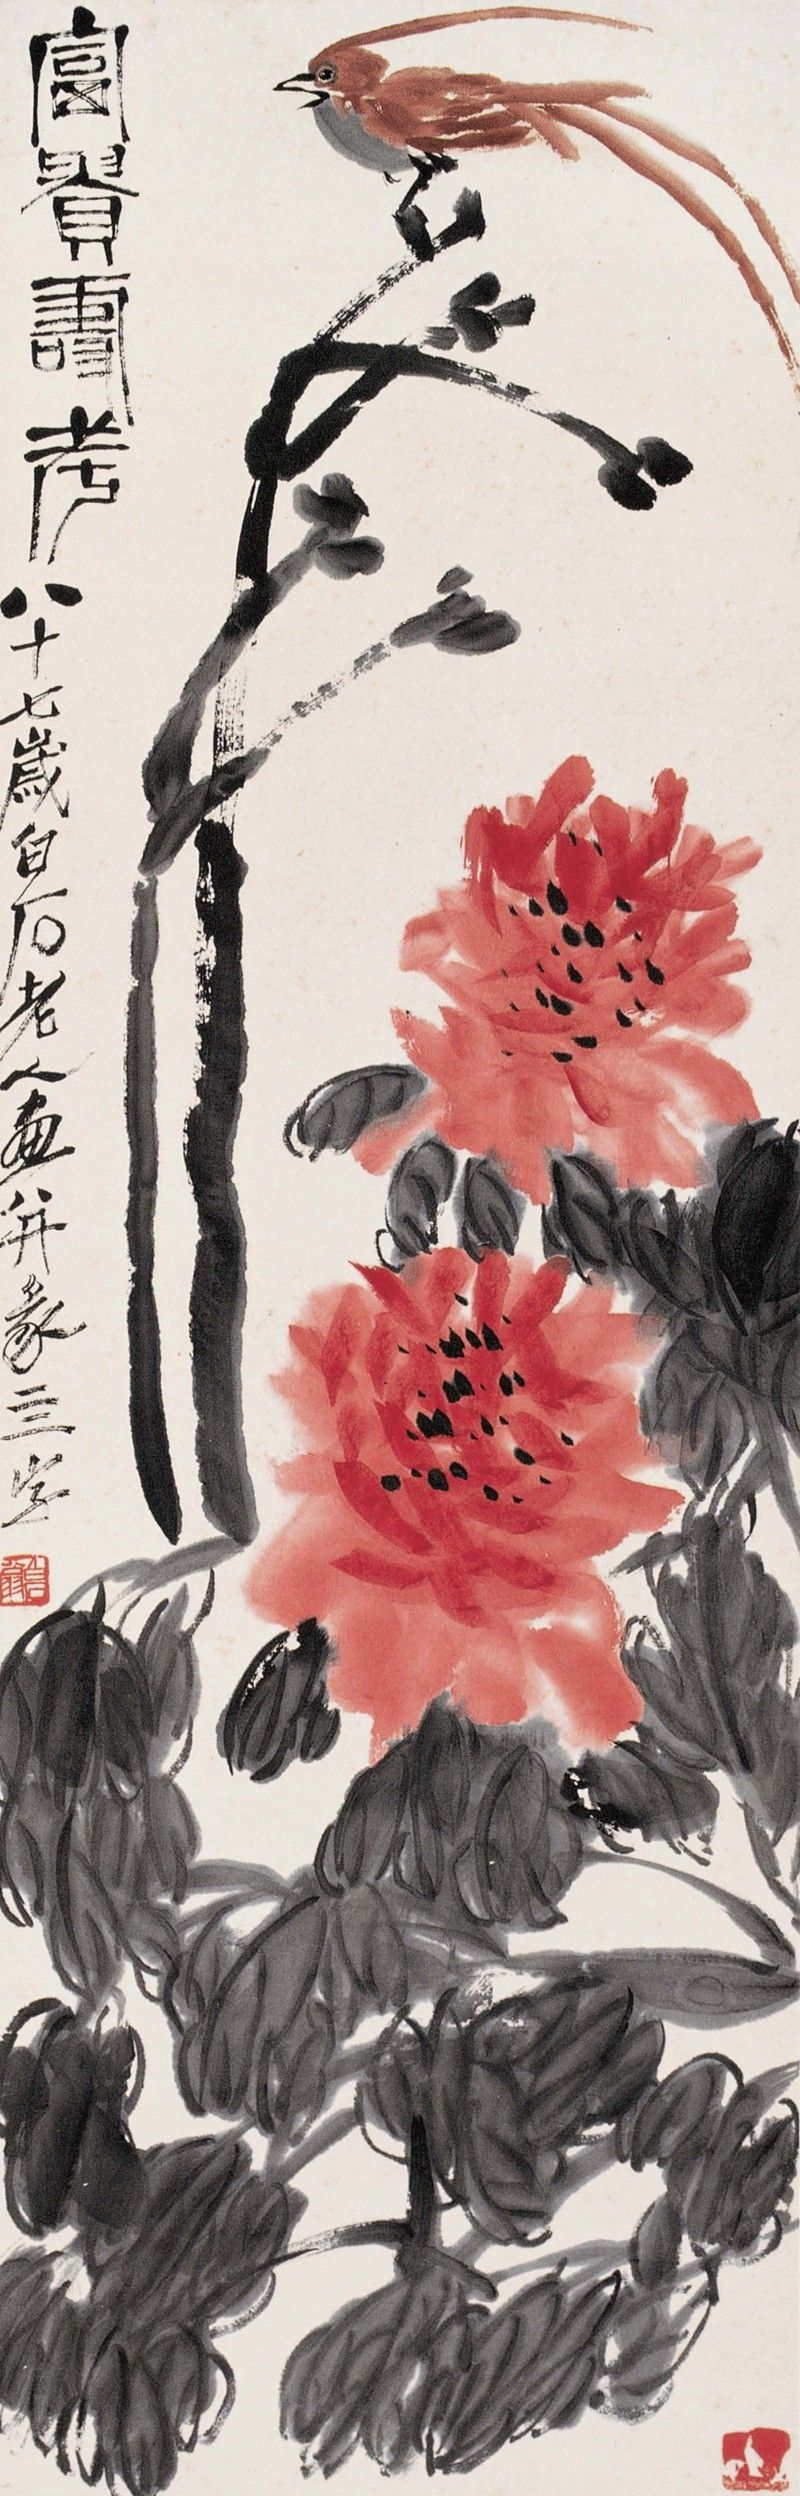 富貴壽考
八十七歲白石老人畫并篆三字